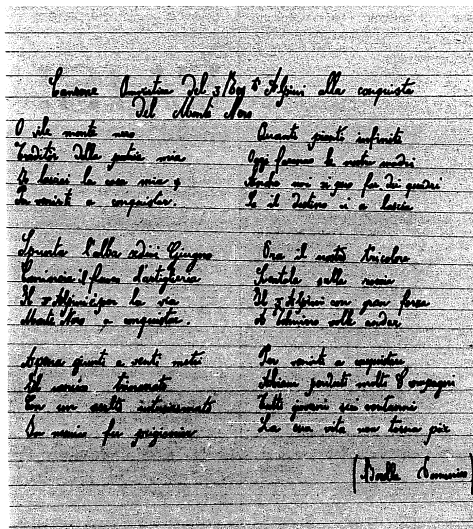 Canzone del 3/ Alpini alla conquista
del Monte Nero
O vile monte nero
Traditor della patria mia
lasciai la casa mia
Per venirti a conquistar.
Spunta l'alba sedici Giugno
Comincia il fuoco d'artiglieria
Il 3 Alpini è per la via
Monte Nero a conquistar.
Appena giunti a venti metri
Il nemico trincerato
Con un assalto
Il nemico fu prigionier
Quanti pianti infiniti
Oggi faranno le nostre madri
Anche noi si per dei quadri
Se il destino ci a lascia
Ora il nostro tricolore
Sventola sulle
Il 3 Alpini con gran forza
A Tolmino volle andar
Per venirti a conquistar
Abbiam perduti molti Compagni
Tutti giovani sui vent'anni
La sua vita non torna più
(Borella Domenico)